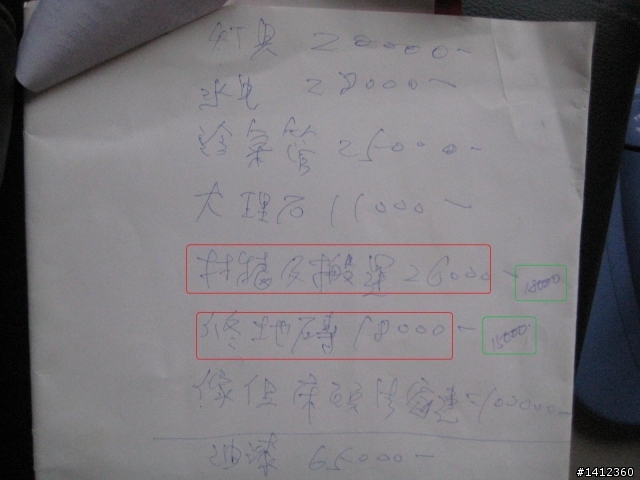 燈具 20000-
水電 28000-
冷氣管 25000-
大理石 11000-
材積及搬運 26000- 18000
修地磚 18000- 15000
100000-
油漆 65000-
#1412360